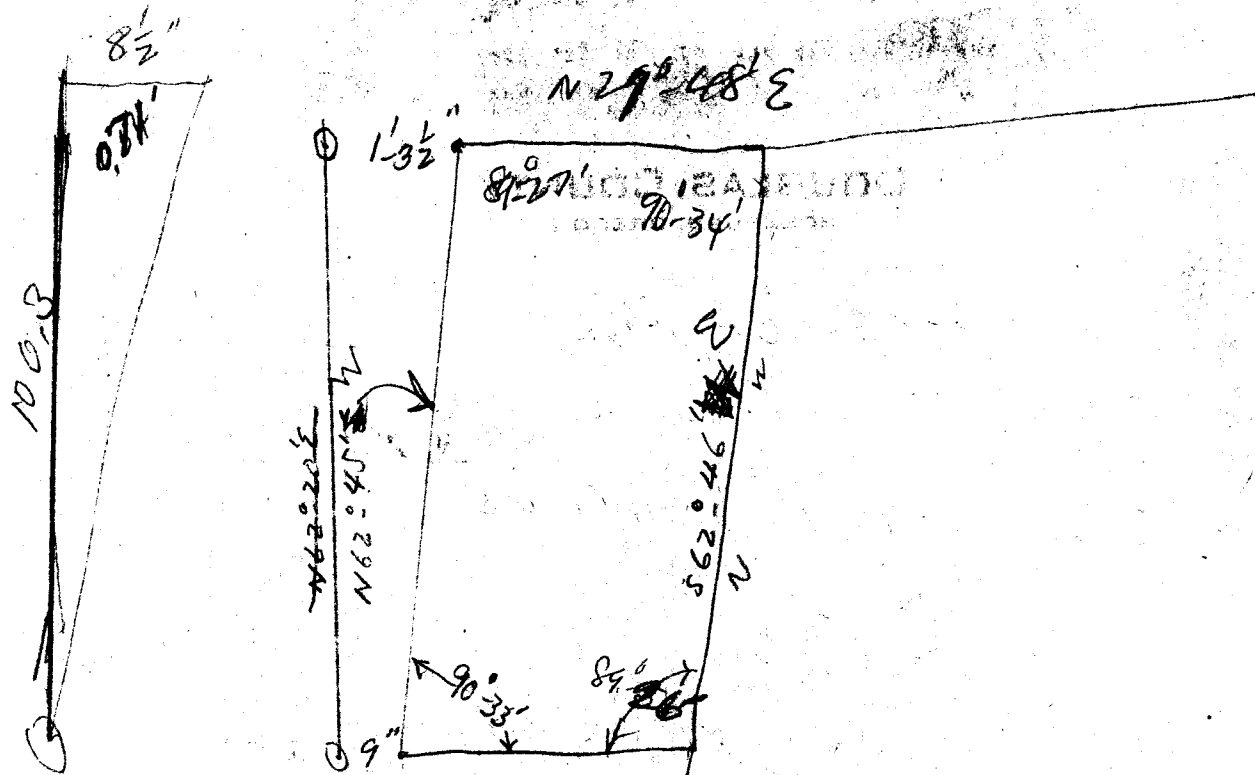 8½"
0.74'
100.3
N 29°-48' E
1'-3½"
89°-27'
90-34'
N62°-20'E
N62°-45'
W
S62°-46'
E
N
W
90°-33'
9"